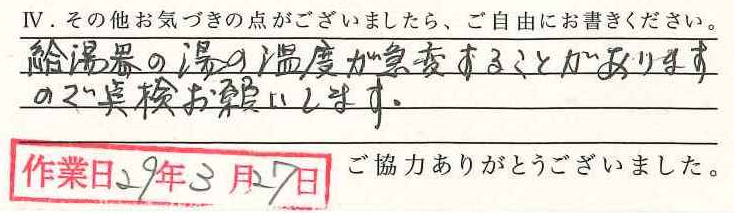 Ⅳ．その他お気づきの点がございましたら、ご自由にお書きください。
給湯器の湯の温度が急変することがあります
ので点検お願いします。
作業日29年3月27日
ご協力ありがとうございました。